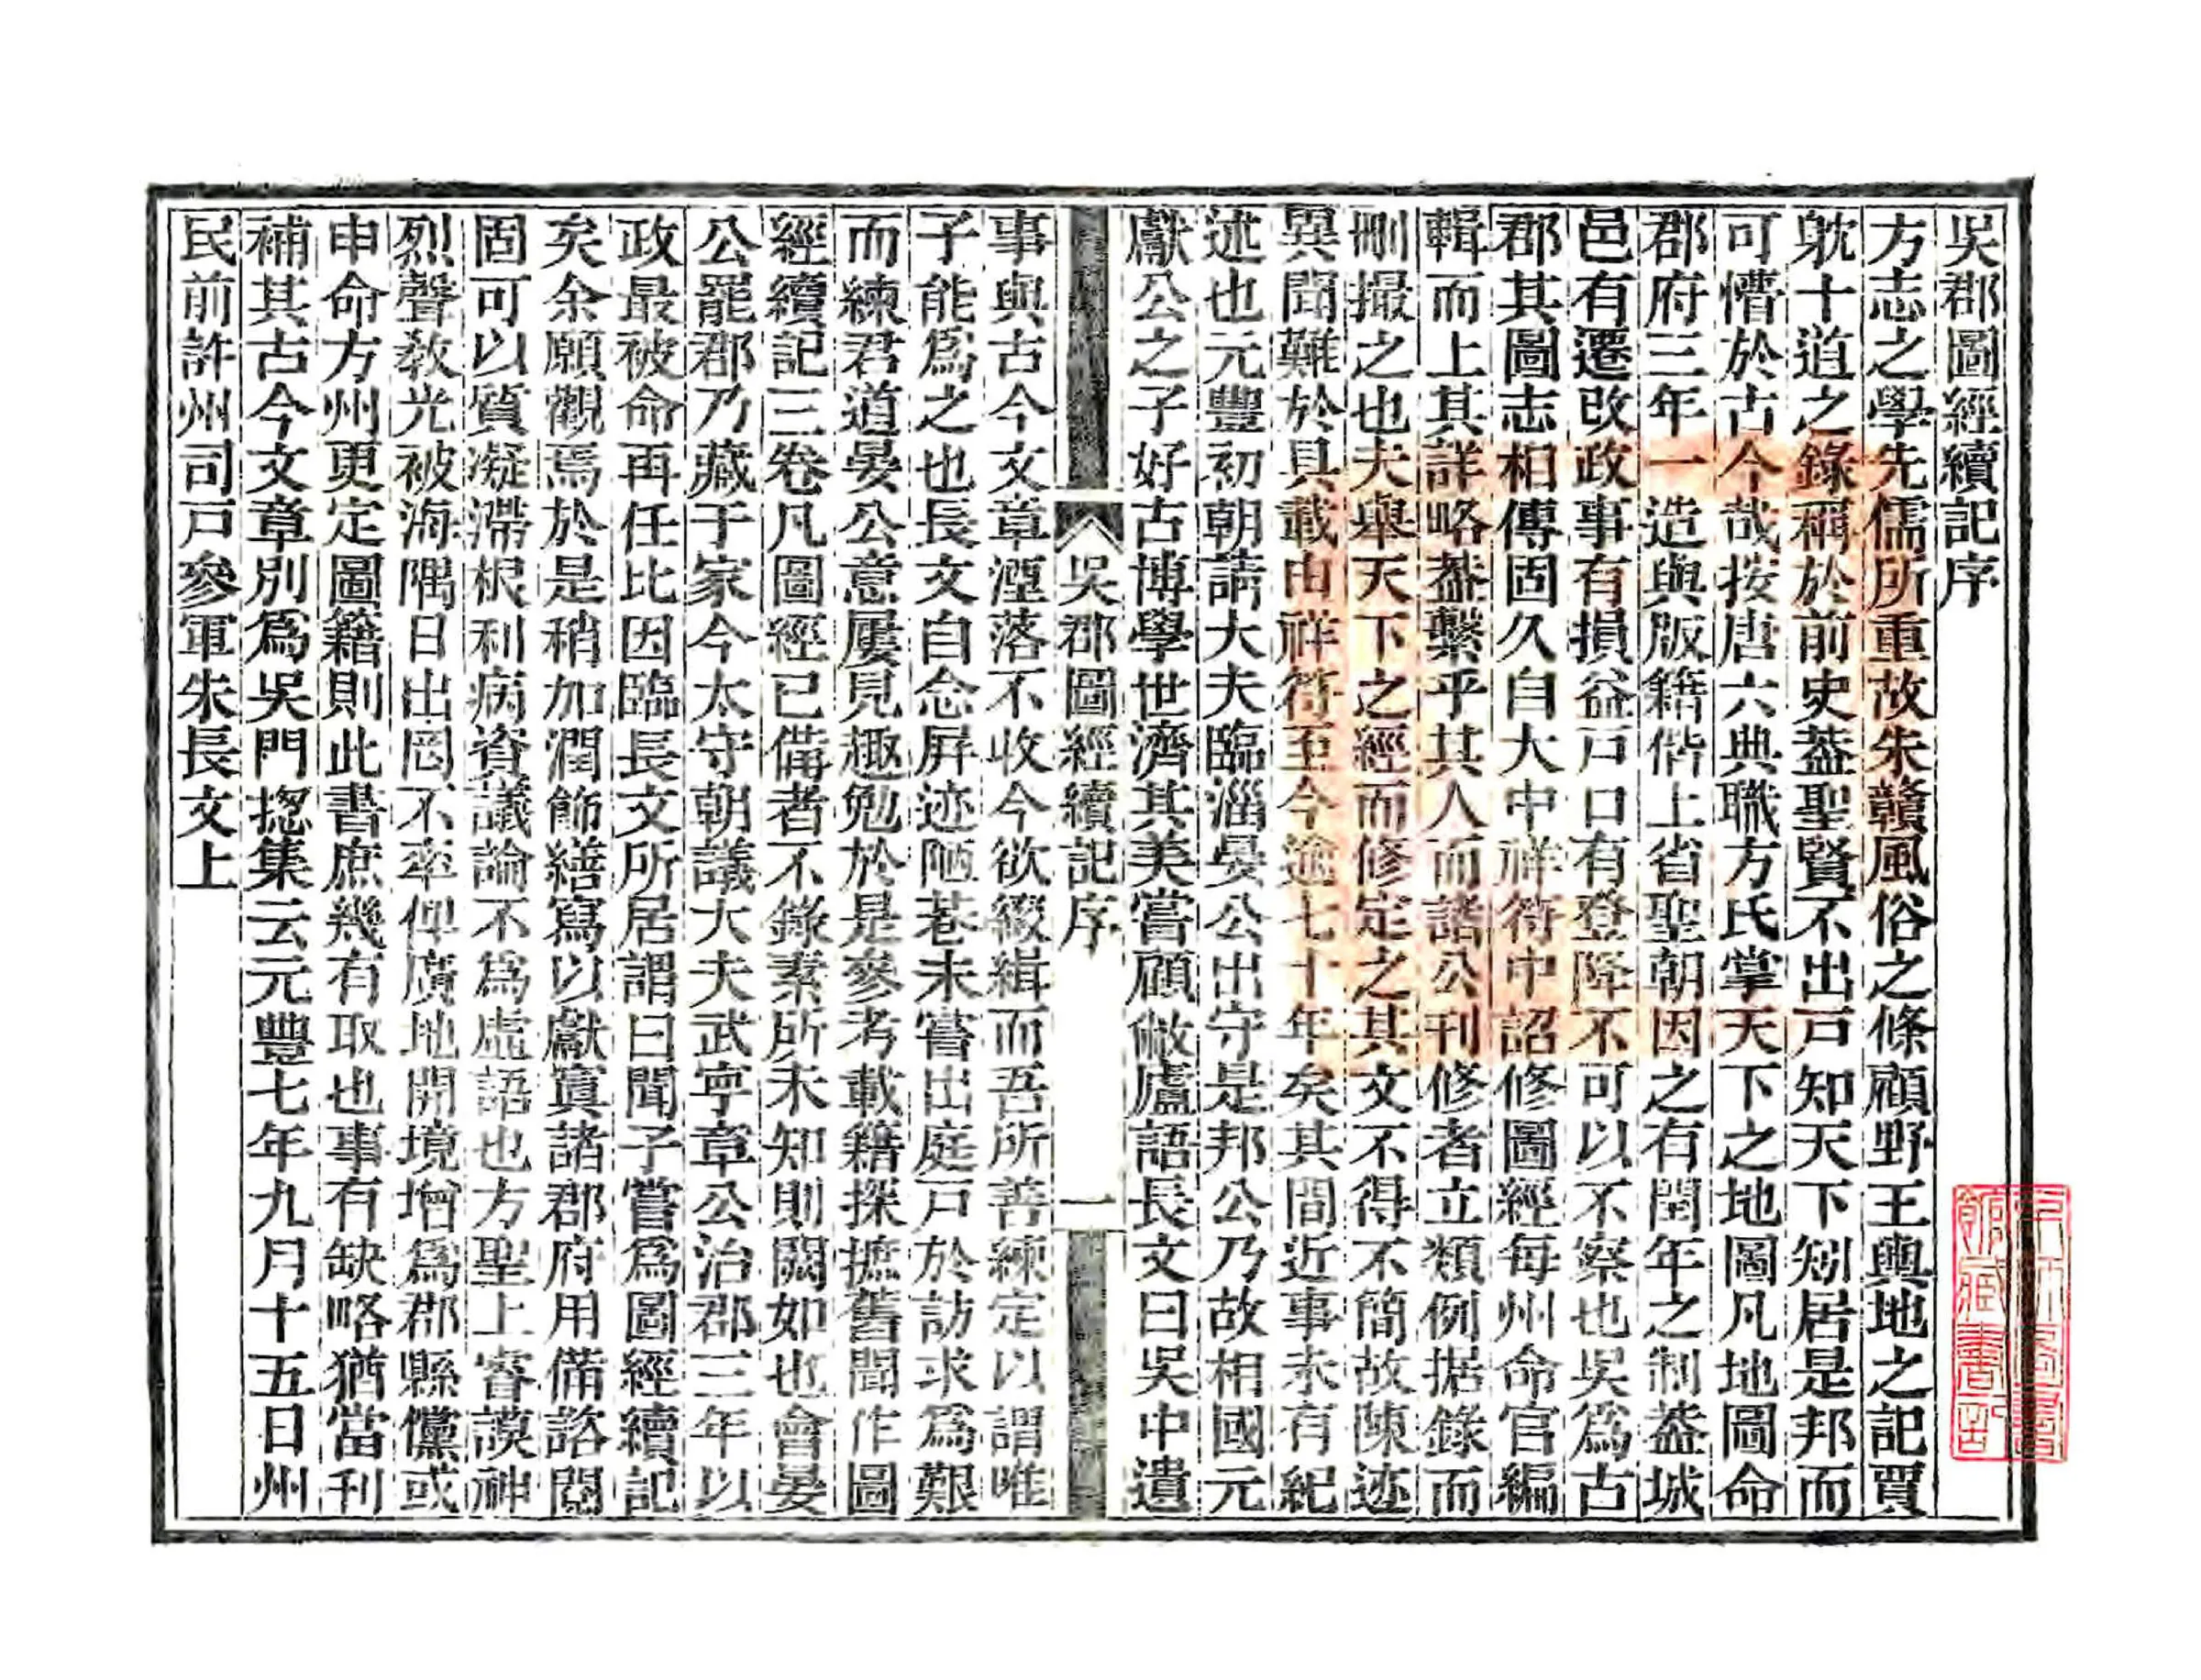 吳郡圖經續記序
方志之學先儒所重故朱贛風俗之條顧野王輿地之記賈
躭十道之錄稱於前史葢聖賢不出戶知天下矧居是邦而
可懵於古今哉按唐六典職方氏掌天下之地圖凡地圖命
郡府三年一造與版籍偕上省聖朝因之有閏年之制葢城
邑有遷改政事有損益戶口有登降不可以不察也吳爲古
郡其圖志相傳固久自大中祥符中詔修圖經每州命官編
輯而上其詳略葢繫乎其人而諸公刊修者立類例据錄而
刪撮之也夫舉天下之經而修定之其文不得不簡故陳迹
異聞難於具載由祥符至今逾七十年矣其間近事未有紀
述也元豐初朝請大夫臨淄晏公出守是邦公乃故相國元
獻公之子好古博學世濟其美嘗顧敝廬語長文曰吳中遺
吳郡圖經續記序
一
事與古今文章湮落不收今欲綴緝而吾所善練定以謂唯
子能爲之也長文自念屏迹陋巷未嘗出庭戶於訪求爲艱
而練君道晏公意屢見趣勉於是參考載籍探摭舊聞作圖
經續記三卷凡圖經已備者不錄素所未知則闕如也會晏
公罷郡乃藏于家今太守朝議大夫武寧章公治郡三年以
政最被命再任比因臨長文所居謂曰聞子嘗爲圖經續記
矣余願觀焉於是稍加潤飾繕寫以獻寘諸郡府用備諮閱
固可以質凝滯根利病資議論不爲虛語也方聖上睿謨神
烈聲敎光被海隅日出罔不率俾廣地開境增爲郡縣儻或
申命方州更定圖籍則此書庶幾有取也事有缺略猶當刊
補其古今文章別爲吳門揔集云元豐七年九月十五日州
民前許州司戶參軍朱長文上